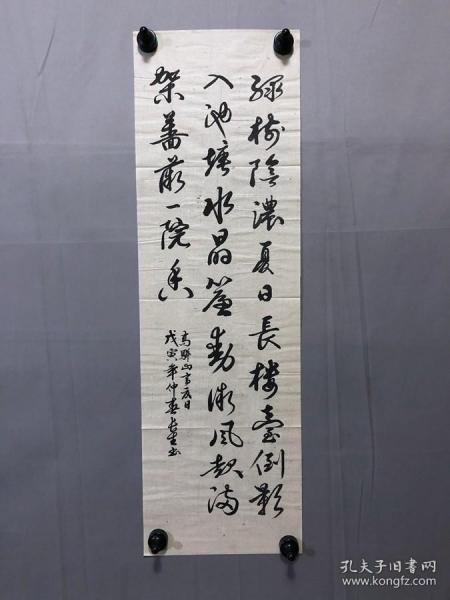 綠樹陰濃夏日長樓臺倒影
入池塘水晶簾動微風起滿
架薔薇一院香
高駢山亭夏日
戊寅年仲春
孔夫子旧书网
www.kongfz.com